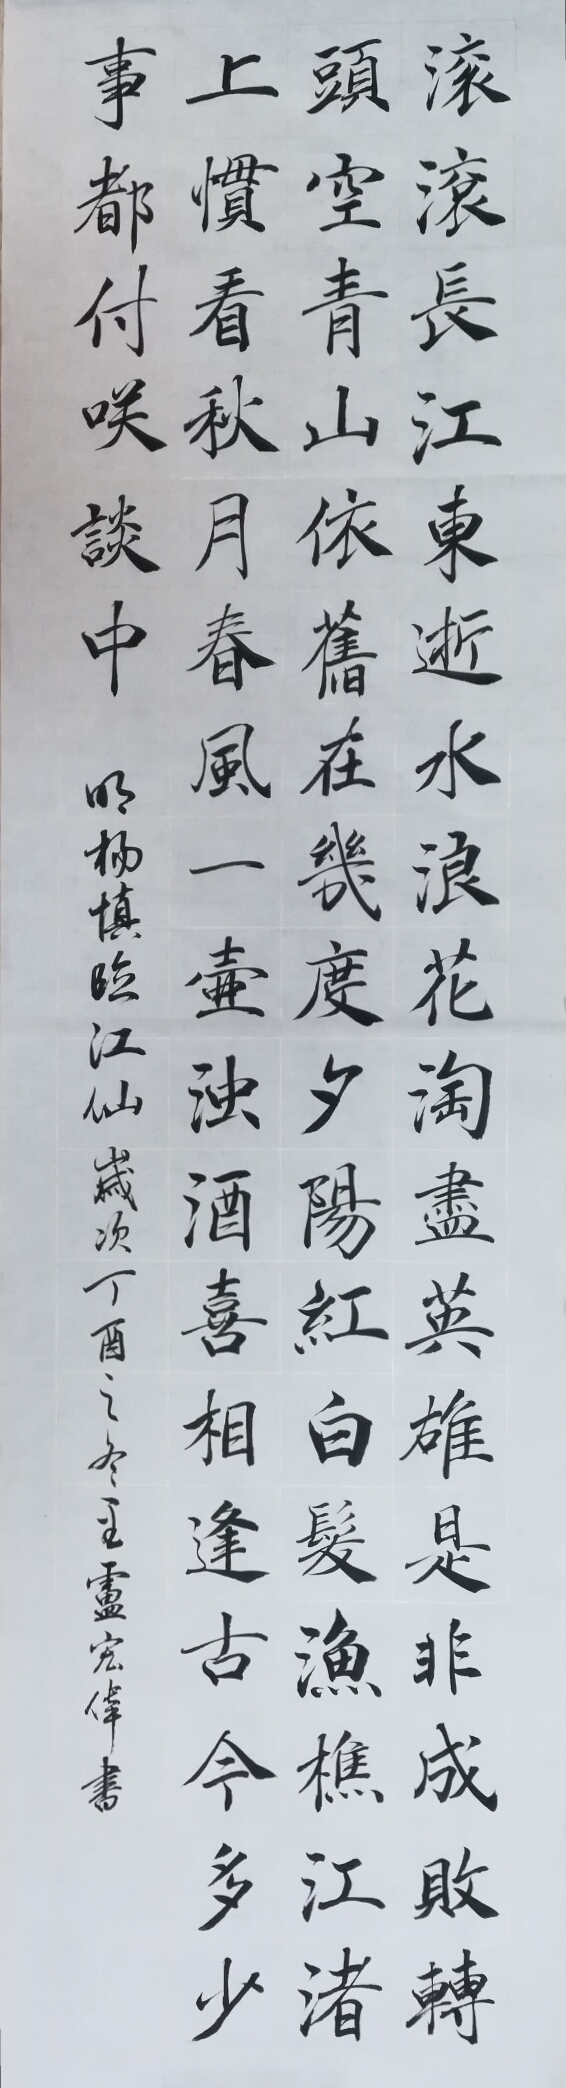 滚滚長江東逝水浪花淘盡英雄是非成敗轉
頭空青山依舊在幾度夕陽紅白髮漁樵江渚
上慣看秋月春風一壺浊酒喜相逢古今多少
事都付咲談中
明楊慎临江仙歲次丁酉之冬至盧宏偉書